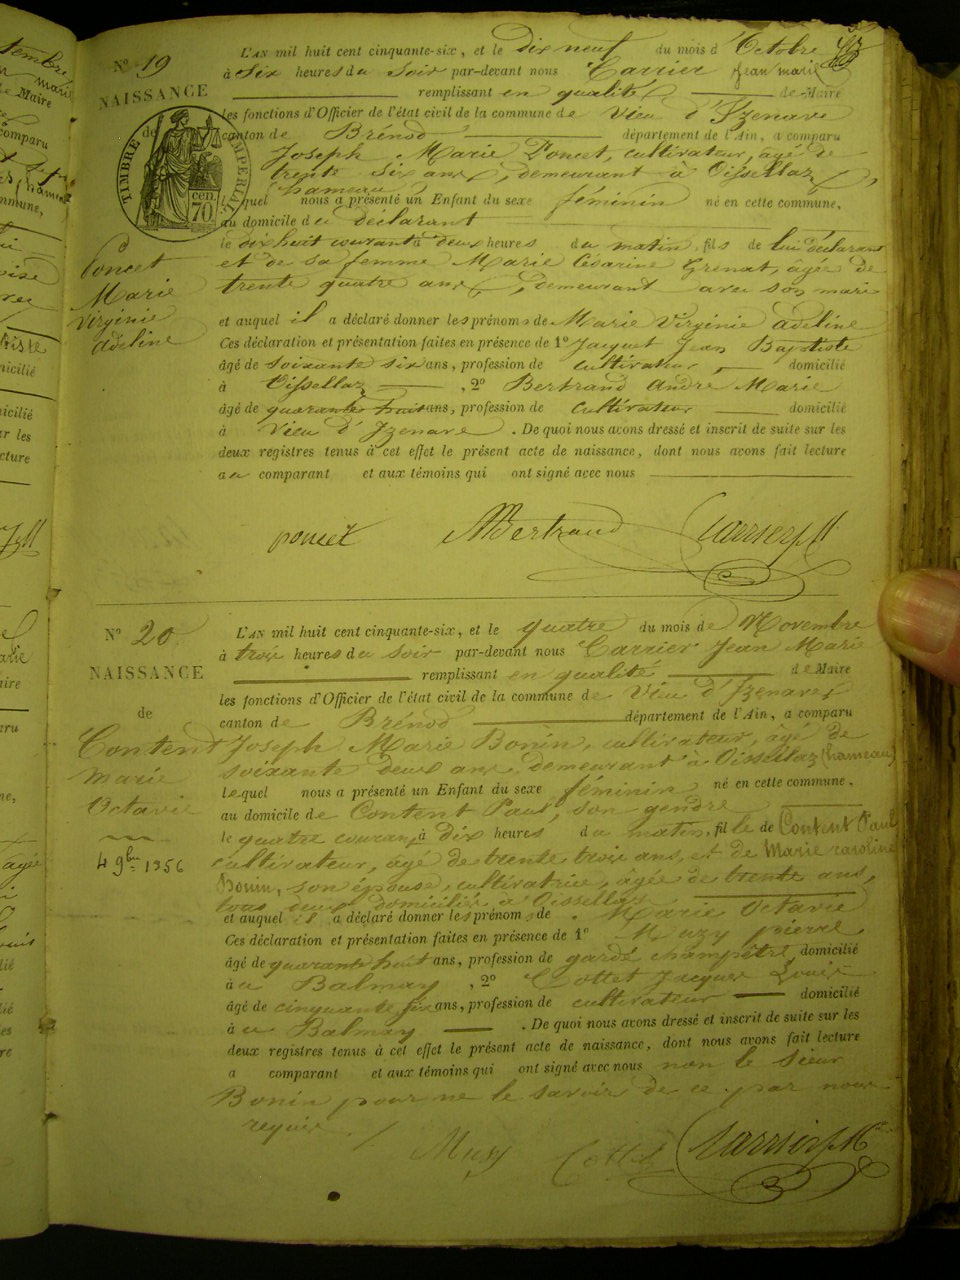 Nº 19
NAISSANCE
de
TIMBRE IMPERIAL
70 cen.
Poncet
Marie
Virginie
Adeline
L'AN mil huit cent cinquante-six, et le Dix neuf du mois d'Octobre
à six heures du soir par-devant nous Carrier Jean marie
remplissant en qualité de Maire
les fonctions d'Officier de l'état civil de la commune de Vieu d'Izenave
canton de Brénod département de l'Ain, a comparu
Joseph Marie Poncet, cultivateur, âgé de
trente six ans, demeurant à Oissellaz,
hameau
lequel nous a présenté un Enfant du sexe féminin né en cette commune,
au domicile du déclarant
le dix huit courant à deux heures du matin, fils de lui déclarant
et de sa femme Marie Césarine Grenat, âgée de
trente quatre ans, demeurant avec son mari
et auquel il a déclaré donner les prénoms de Marie Virginie adeline
Ces déclaration et présentation faites en présence de 1º Jacquet Jean Baptiste
âgé de soixante six ans, profession de cultivateur, domicilié
à Oissellaz, 2º Bertrand André Marie
âgé de quarante huit ans, profession de cultivateur domicilié
à Vieu d'Izenave. De quoi nous avons dressé et inscrit de suite sur les
deux registres tenus à cet effet le présent acte de naissance, dont nous avons fait lecture
au comparant et aux témoins qui ont signé avec nous
poncet Bertrand Carrier JM
Nº 20
NAISSANCE
de
Content
Marie
Octavie
4 9bre 1856
L'AN mil huit cent cinquante-six, et le quatre du mois de Novembre
à trois heures du soir par-devant nous Carrier Jean Marie
remplissant en qualité de Maire
les fonctions d'Officier de l'état civil de la commune de Vieu d'Izenave
canton de Brénod département de l'Ain, a comparu
Joseph Marie Bonin, cultivateur, âgé de
soixante deux ans, demeurant à Oissellaz (hameau)
lequel nous a présenté un Enfant du sexe féminin né en cette commune,
au domicile de Content Paul, son gendre
le quatre courant à dix heures du matin, fille de Content Paul
cultivateur, âgé de trente trois ans, et de Marie caroline
Bonin, son épouse, cultivatrice, âgée de trente ans,
tous deux domiciliés à Oissellaz
et auquel il a déclaré donner les prénoms de Marie Octavie
Ces déclaration et présentation faites en présence de 1º Muzy pierre
âgé de quarante huit ans, profession de garde champêtre, domicilié
à au Balmay, 2º Cottet Jacques Louis
âgé de cinquante six ans, profession de cultivateur domicilié
à au Balmay. De quoi nous avons dressé et inscrit de suite sur les
deux registres tenus à cet effet le présent acte de naissance, dont nous avons fait lecture
a comparant et aux témoins qui ont signé avec nous non le sieur
Bonin pour ne le savoir de ce par nous
requis.
Musy Cottet Carrier JM